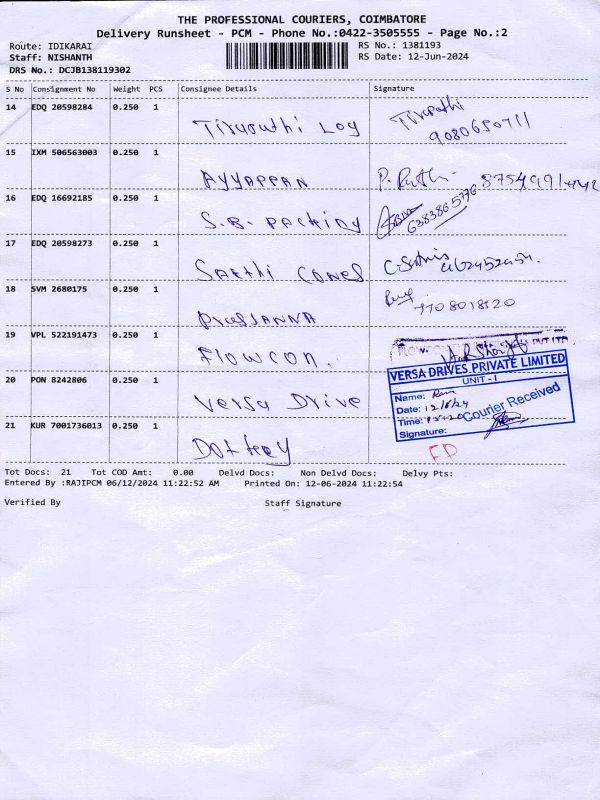 THE PROFESSIONAL COURIERS, COIMBATORE
Delivery Runsheet - PCM - Phone No.:0422-3505555 - Page No.:2
Route: IDIKARAI
RS No.: 1381193
Staff: NISHANTH
RS Date: 12-Jun-2024
DRS No.: DCJB138119302
S No Consignment No Weight PCS Consignee Details Signature
14 EDQ 20598284 0.250 1 Tirupathi Log Tirupathi
9080650711
15 IXM 506563003 0.250 1 AYYAPPAN
16 EDQ 16692185 0.250 1 S.B. PACKING 6383865776
17 EDQ 20598273 0.250 1 SAKTHI CONES
18 SVM 2680175 0.250 1 PRASSANNA
19 VPL 522191473 0.250 1 FLOWCON.
VERSA DRIVES PRIVATE LIMITED
UNIT - I
20 PON 8242806 0.250 1 Versa Drive
Name:
Date: 12/6/24
Time:
Courier Received
Signature:
21 KUR 7001736013 0.250 1
Tot Docs: 21 Tot COD Amt: 0.00 Delvd Docs: Non Delvd Docs: Delvy Pts:
Entered By :RAJIPCM 06/12/2024 11:22:52 AM Printed On: 12-06-2024 11:22:54
Verified By Staff Signature